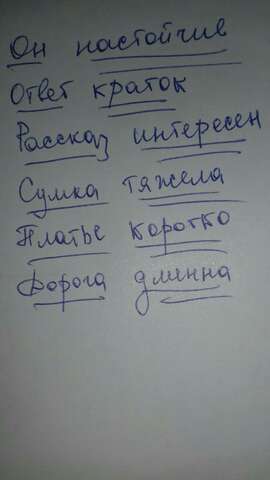 Он настойчив
Ответ краток
Рассказ интересен
Сумка тяжела
Платье коротко
Дорога длинна